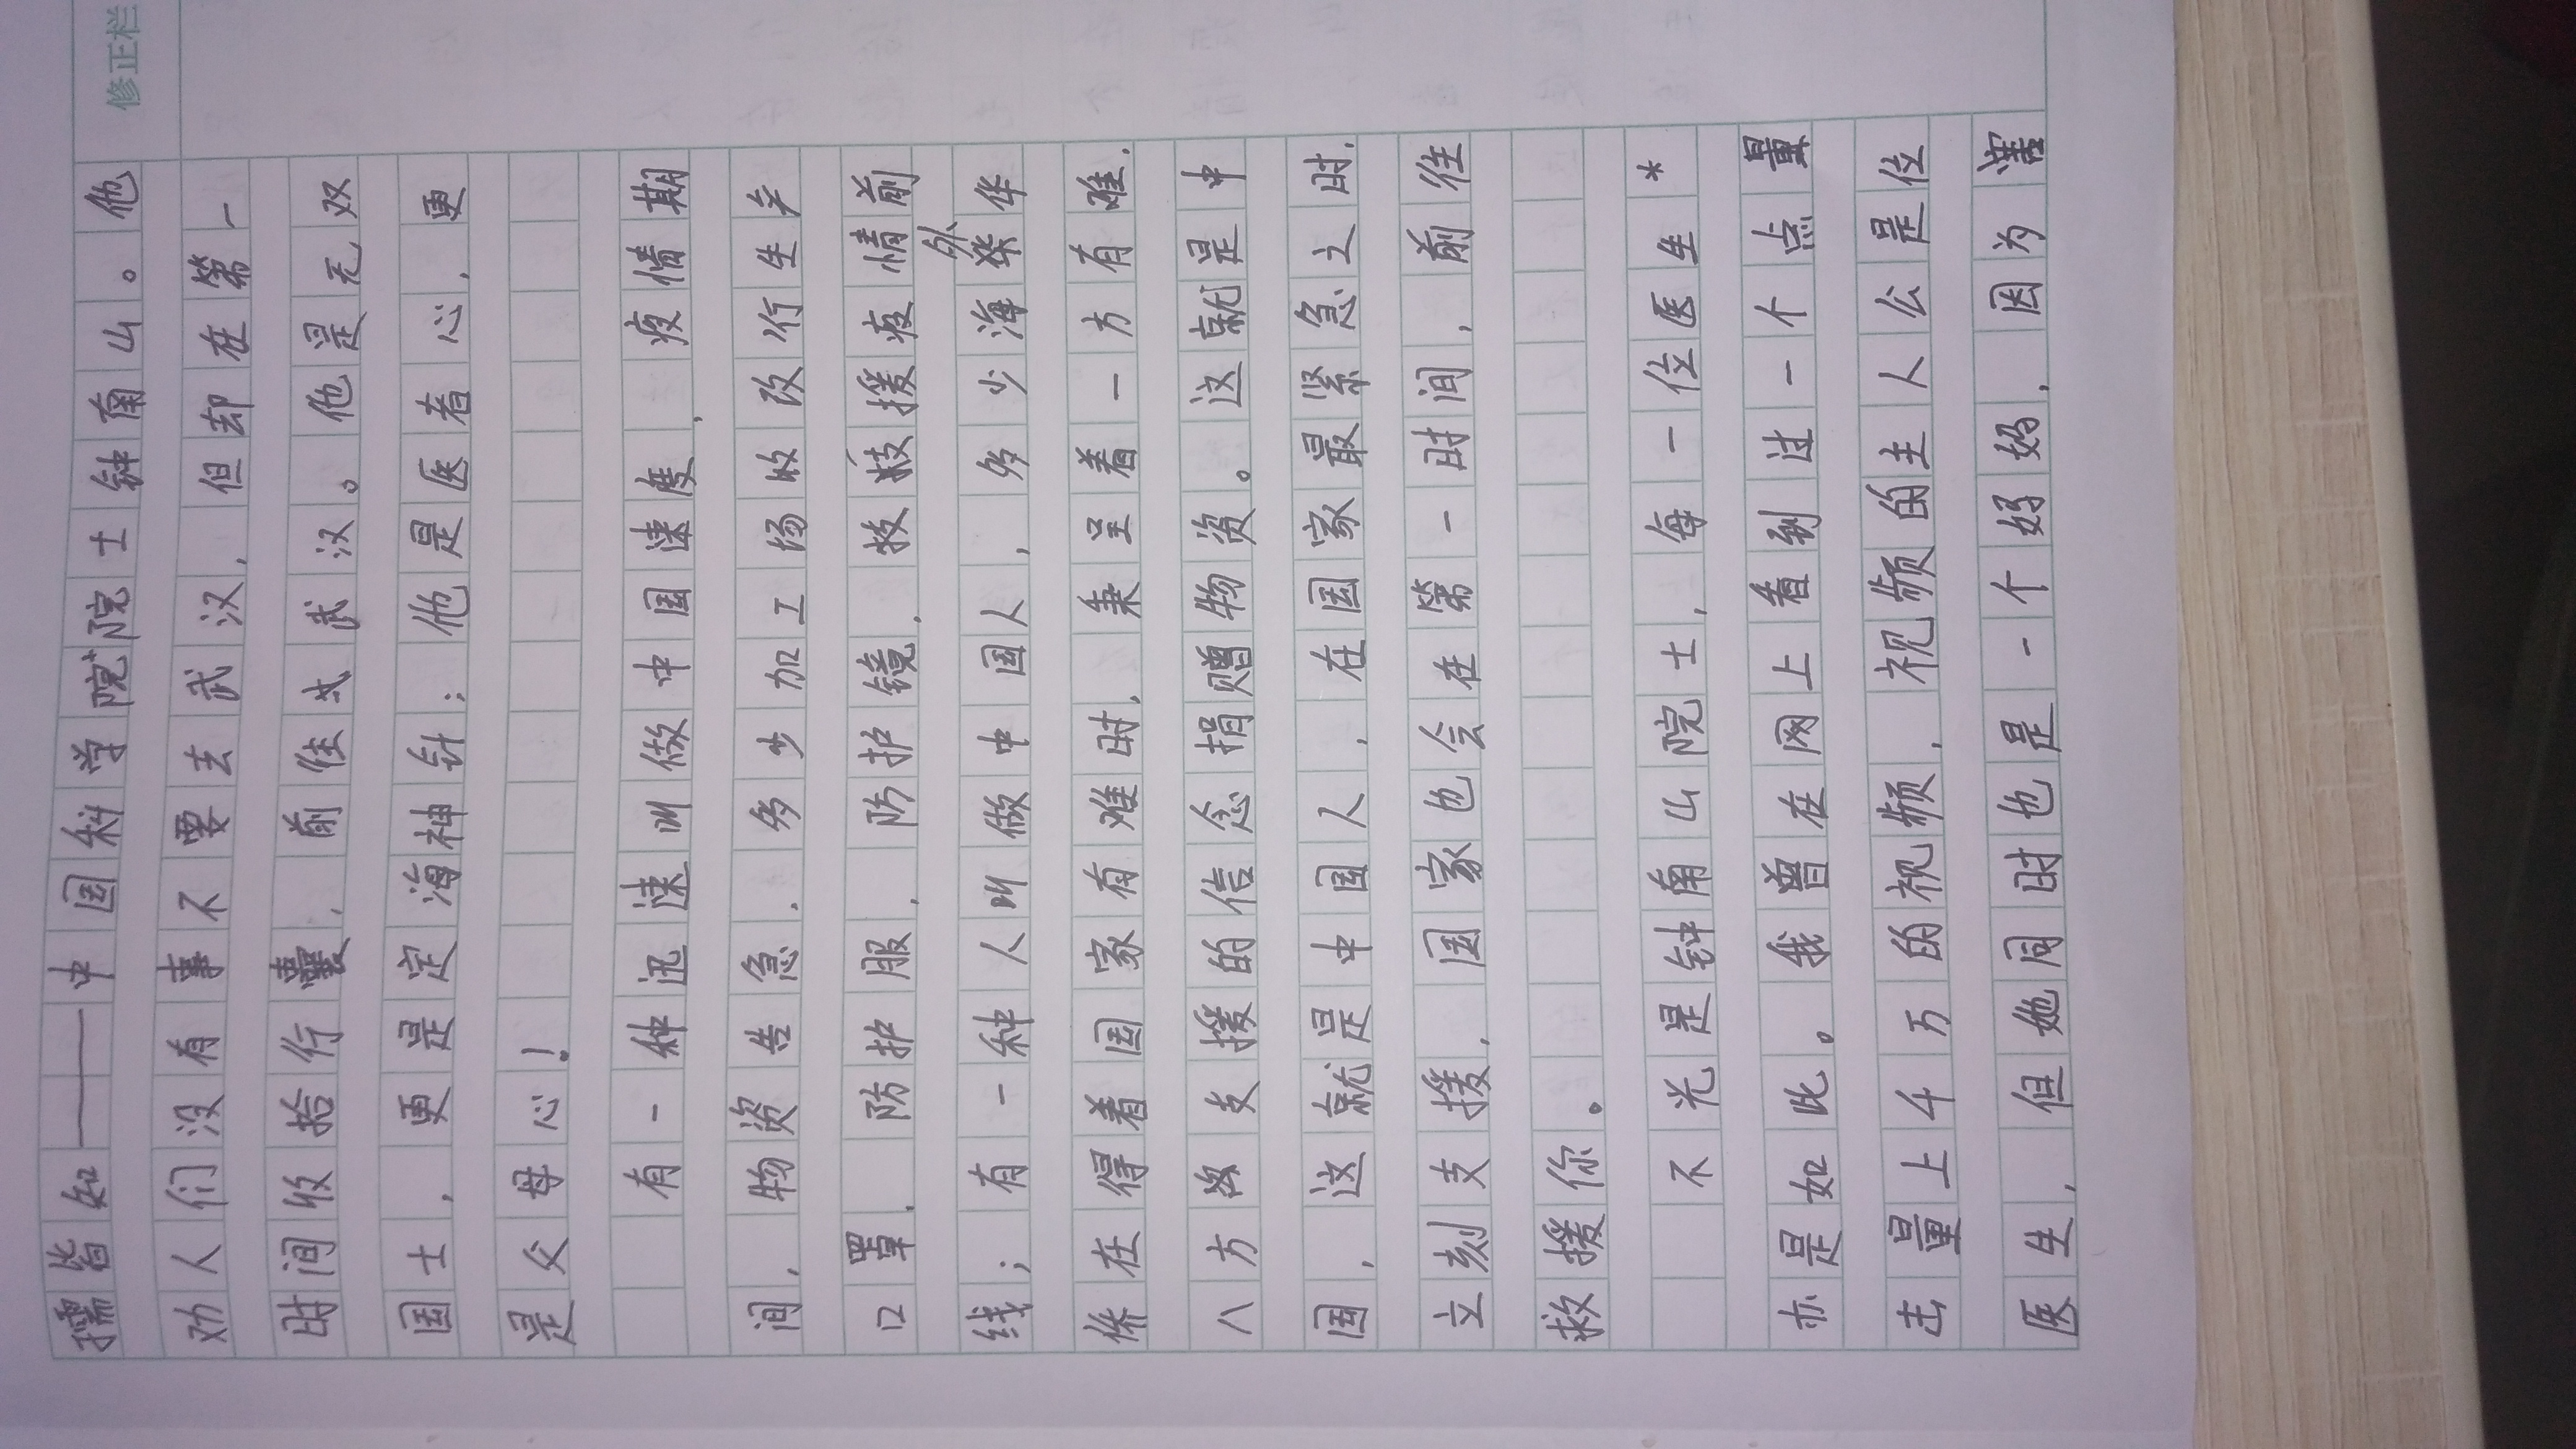 修正栏
孺皆知——中国科学院院士钟南山。他
劝人们没有事不要去武汉，但却在第一
时间收拾行囊，前往武汉。他是无双
国士，更是定海神针；他是医者心，更
是父母心！
有一种迅速叫做中国速度，疫情期
间，物资告急，多少加工场收改行生产
口罩，防护服，防护镜，技援疫情前
线；有一种人叫做中国人，多少海外华
侨在得着国家有难时，秉呈着一方有难，
八方支援的信念捐赠物资。这就是中
国，这就是中国人，在国家最紧急之时，
立刻支援，国家也会在第一时间，前往
救援你。
不光是钟南山院士，每一位医生*
亦是如此。我曾在网上看到过一个点量
击量上千万的视频，视频的主人公是位
医生，但她同时也是一个好妈，因为